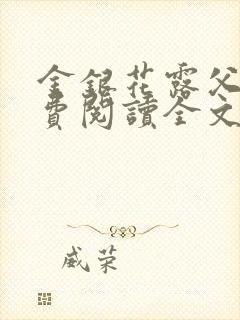 金銀花露父
費閱讀全文
威荣